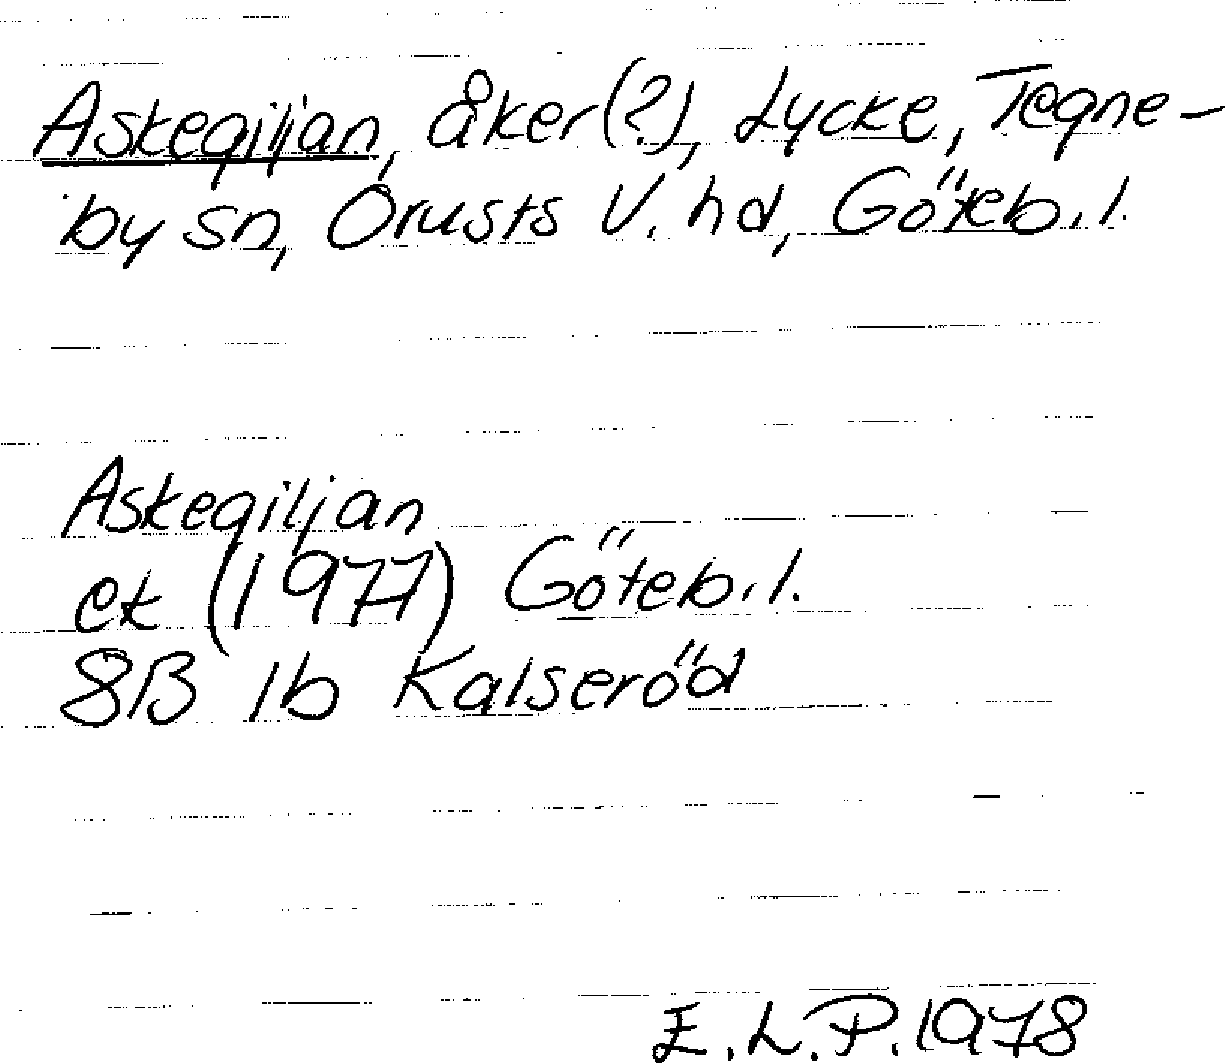 Askegiljan, åker(?), Lycke, Tegne-
by sn, Orusts V. hd, Göteb.l.
Askegiljan
ek (1977) Göteb.l.
8B 1b Kalseröd
E.L.P.1978